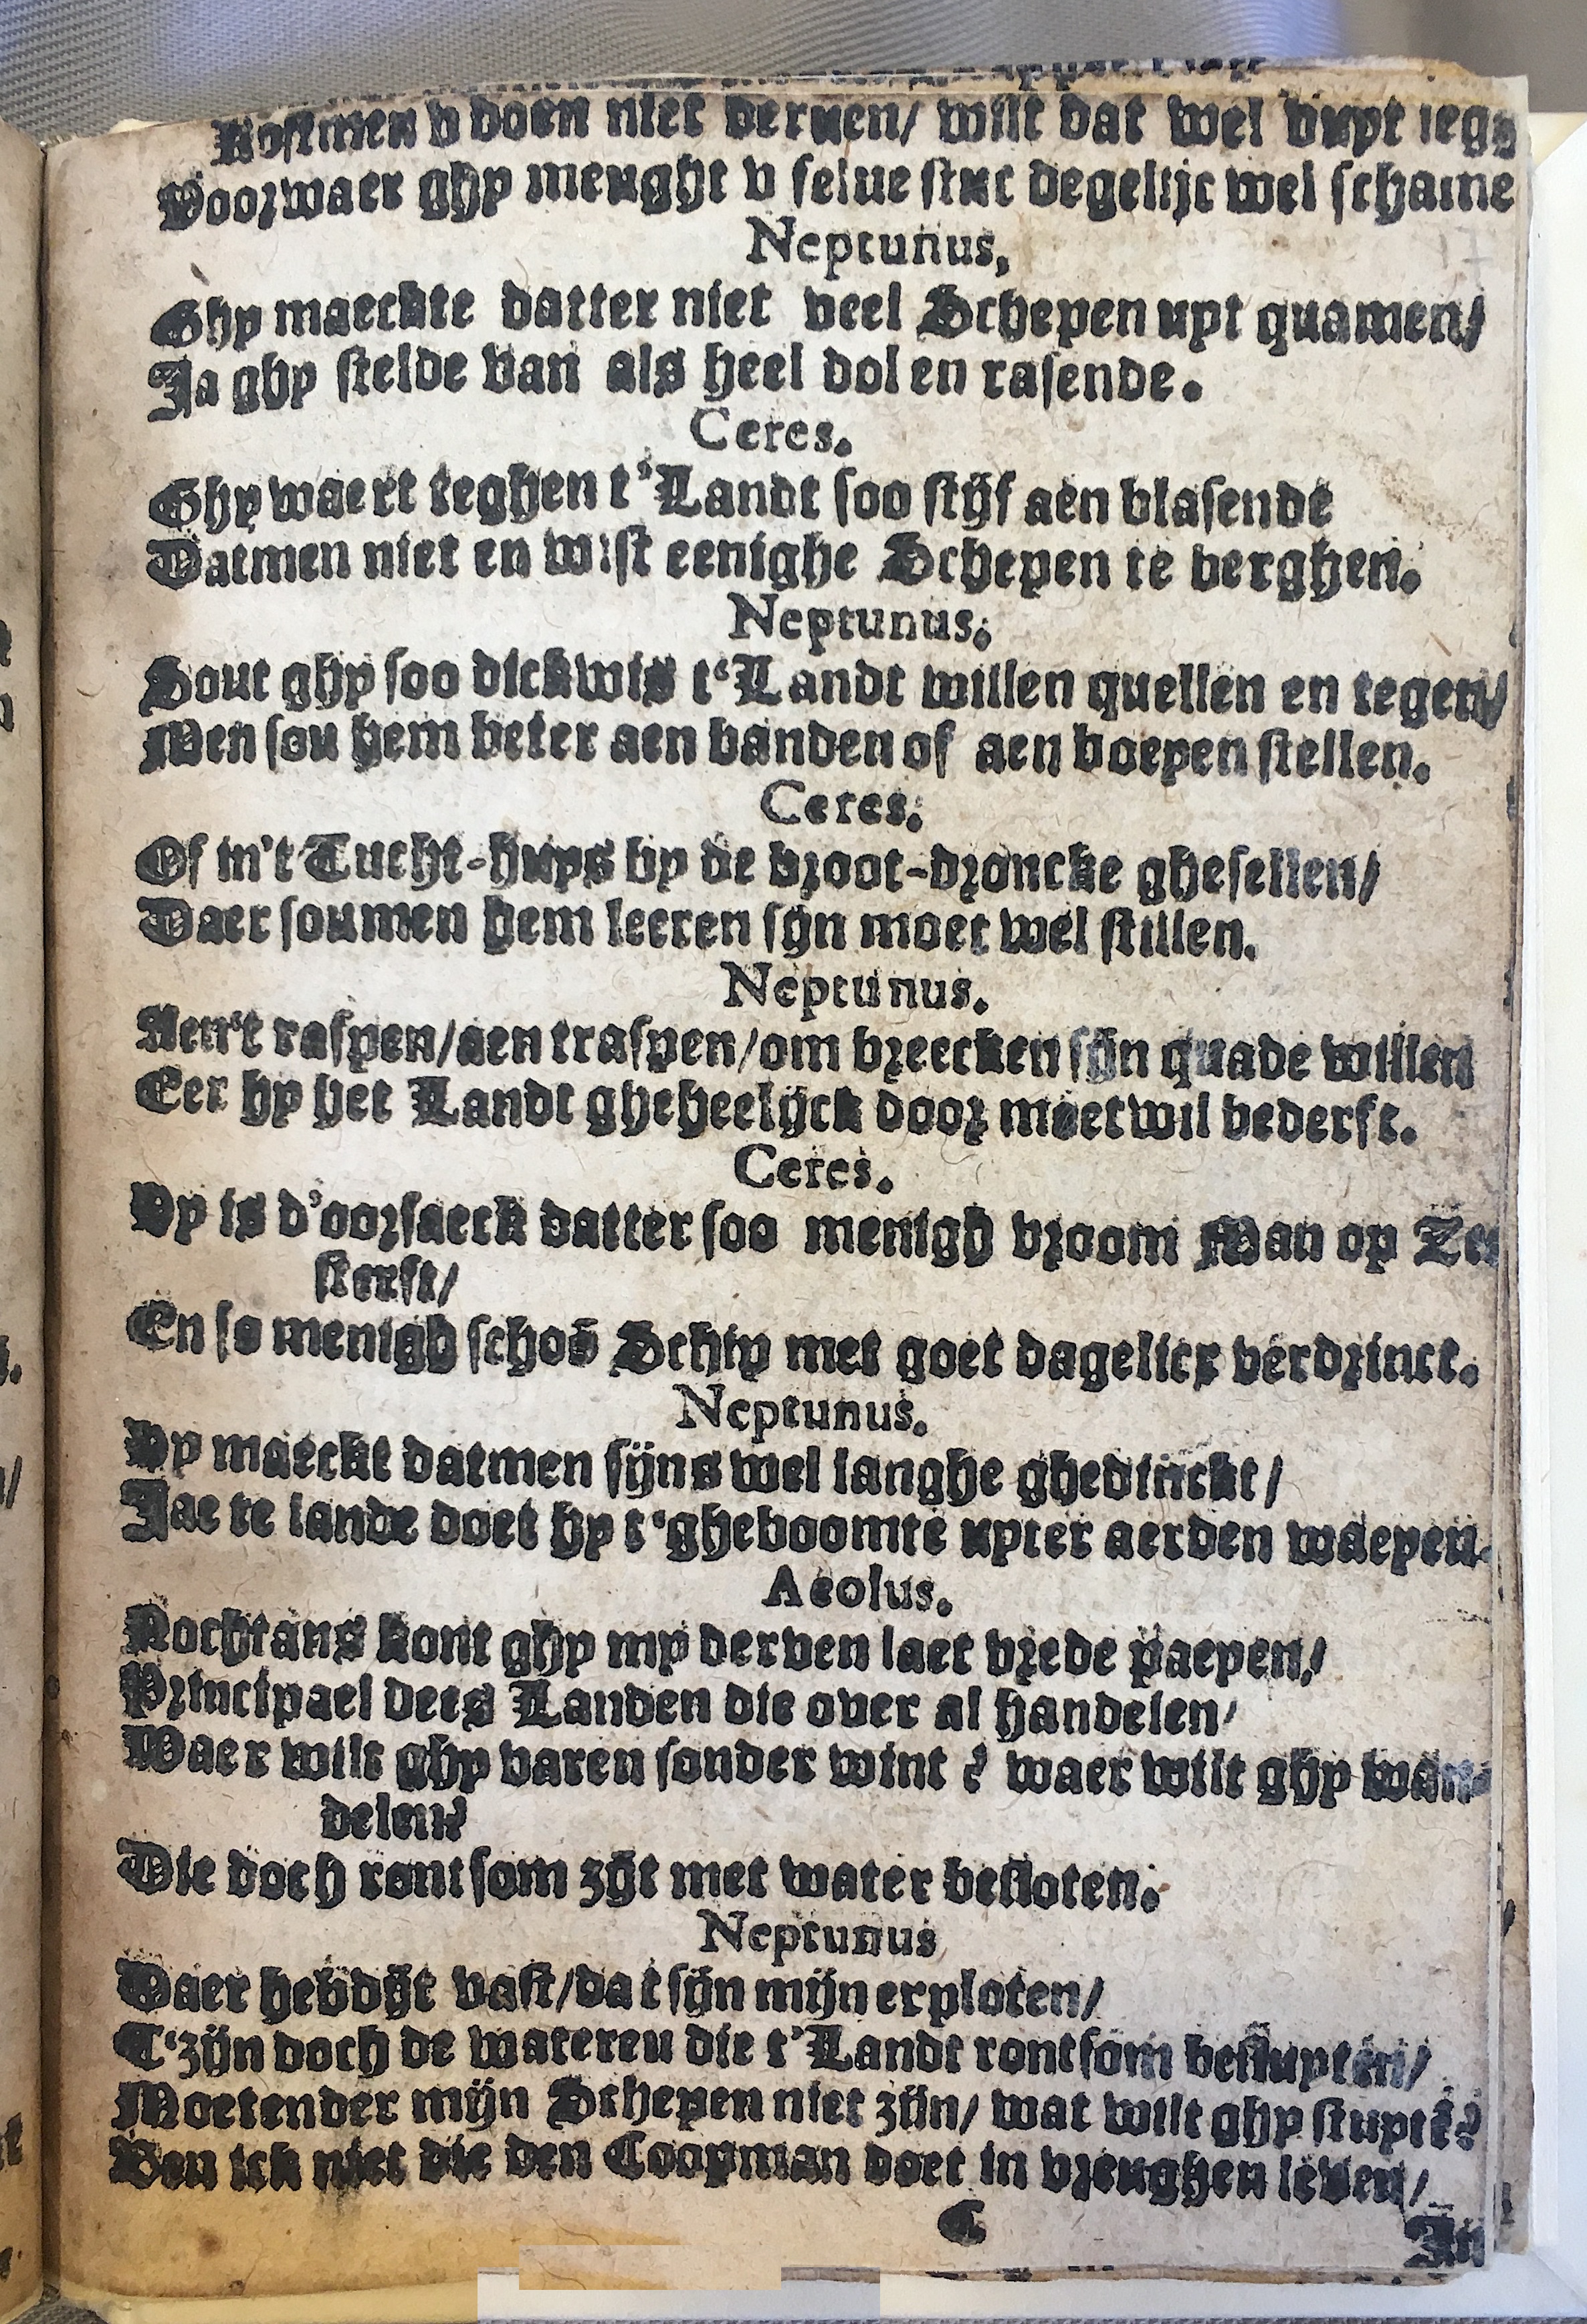 Kostmen v doen niet derven/ wilt dat wel vuyt
Voorwaer ghy meught v selve stuc degelijc wel schame
Neptunus,
Ghy maeckte datter niet veel Schepen uyt quamen/
Ja ghy stelde van als heel dol en rasende.
Ceres.
Ghy waert teghen t'Landt soo stijf aen blasende
Datmen niet en wist eenighe Schepen te berghen.
Neptunus.
Sout ghy soo dickwis t'Landt willen quellen en tegen/
Men sou hem beter aen banden of aen boeyen stellen.
Ceres.
Of in't Tucht-huys by de broot-droncke ghesellen/
Daer soumen hem leeren sijn moet wel stillen.
Neptunus.
Aen't raspen/aen traspen/om breecken sijn quade willen
Eer hy het Landt gheheelijck door moetwil bederft.
Ceres.
Hy is d'oorsaeck datter soo menigh vroom Man op Zee
sterft/
En so menigh schoō Schip met goet dagelicx verdrinct.
Neptunus.
Hy maeckt datmen sijns wel langhe ghedinckt/
Jae te lande doet hy t'gheboomte upter aerden waeyen.
Aeolus.
Nochtans kont ghy my derven laet vrede paeyen/
Principael dees Landen die over al handelen/
Waer wilt ghy varen sonder wint? waer wilt ghy wan-
delen?
Die doch rontsom zijt met water besloten.
Neptunus
Daer hebdijt vast/dat sijn mijn exploten/
T'zijn doch de watereu die t'Landt rontsom besluyten/
Moetender mijn Schepen niet zijn/ wat wilt ghy stuytē?
Ben ick niet die den Coopman doet in vreughen leven/
C
In